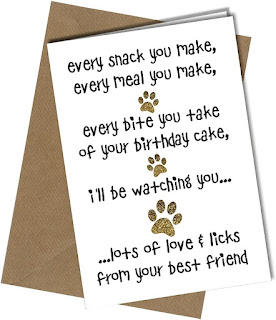 every snack you make,
every meal you make,
every bite you take
of your birthday cake,
i'll be watching you...
...lots of love & licks
from your best friend